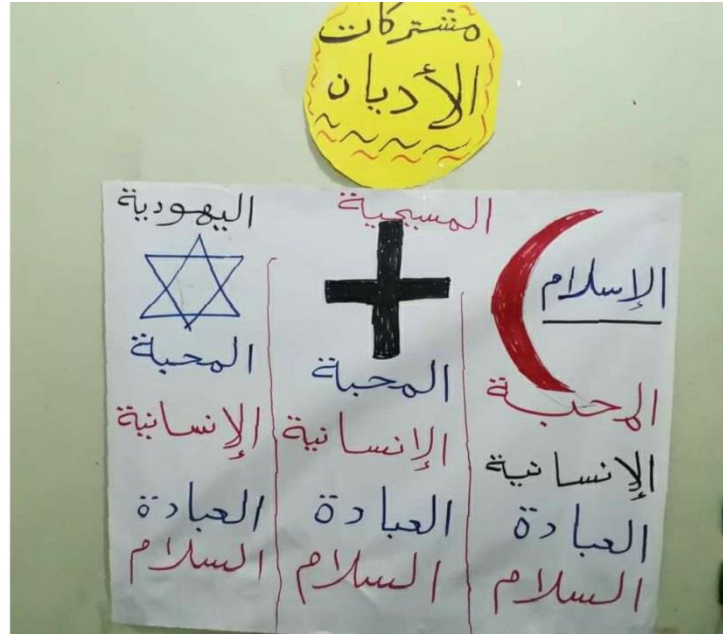 مشتركات
الأديان
الإسلام
المحبة
الإنسانية
العبادة
السلام
المسيحية
المحبة
الإنسانية
العبادة
السلام
اليهودية
المحبة
الإنسانية
العبادة
السلام